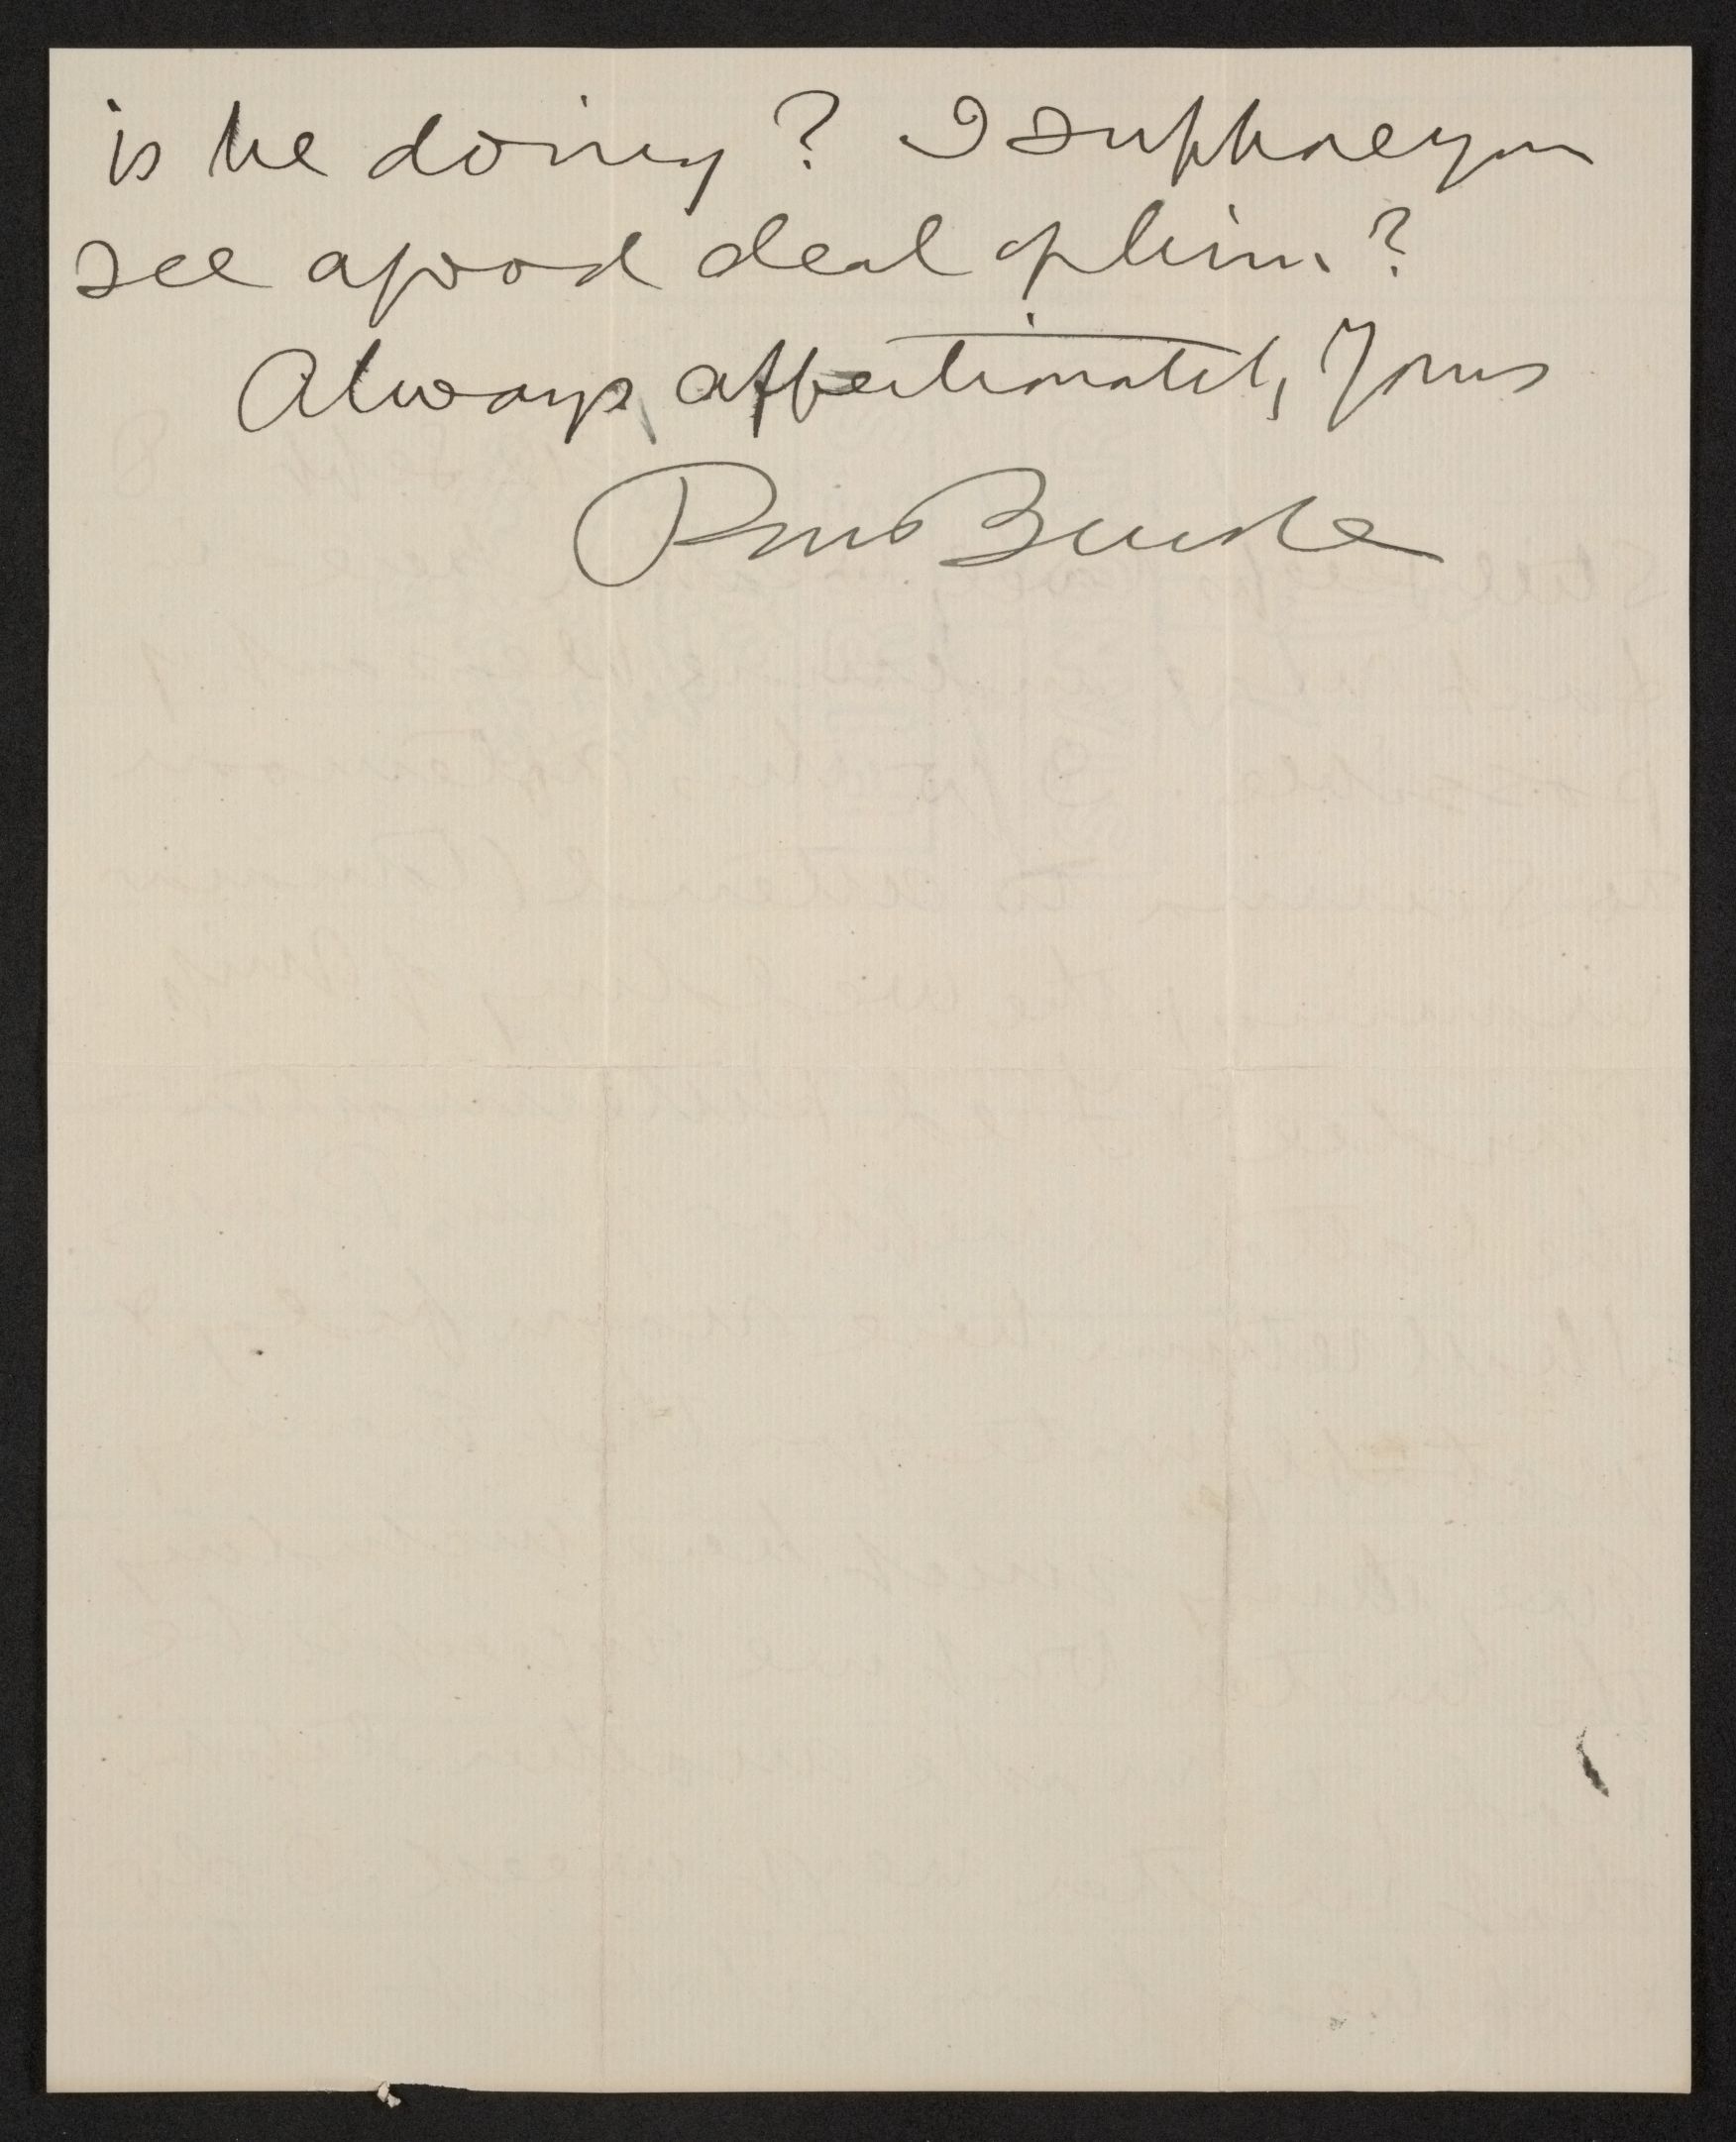 is he doing? I suppose you
see a good deal of him.?
Always affectionately Yours